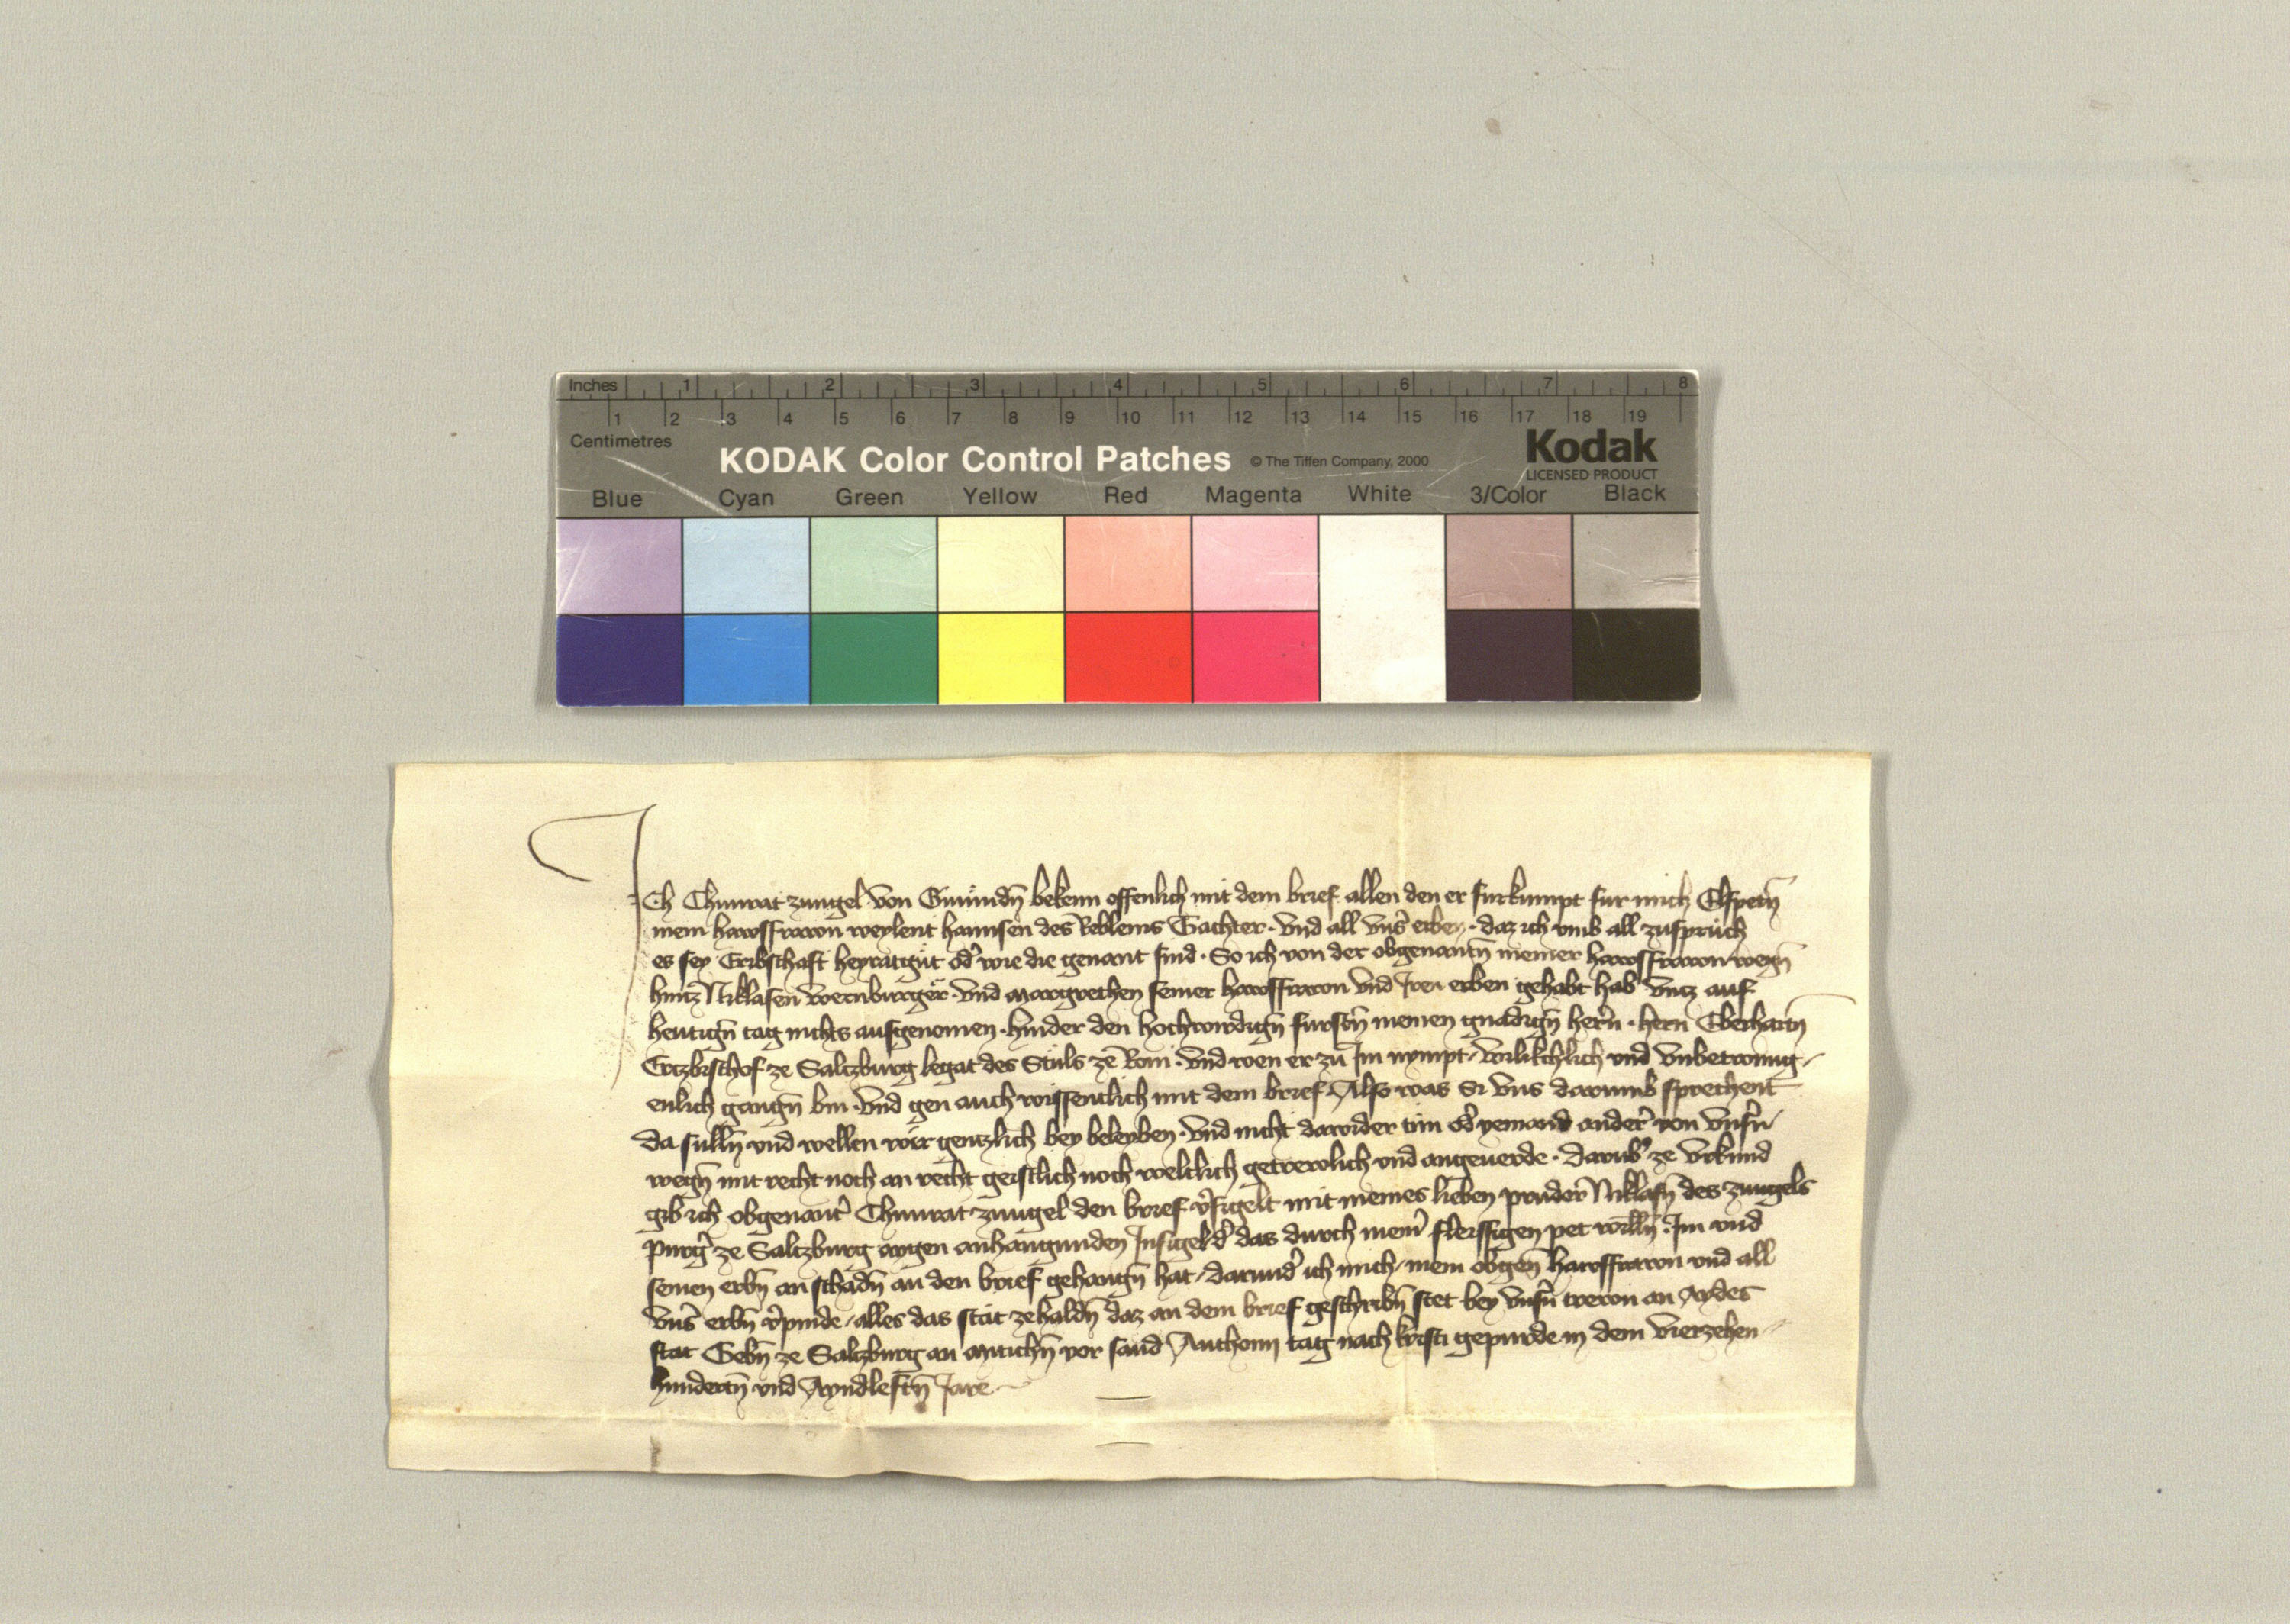 Inches 1 2 3 4 5 6 7 8
1 2 3 4 5 6 7 8 9 10 11 12 13 14 15 16 17 18 19
Centimetres
KODAK Color Control Patches © The Tiffen Company, 2000 Kodak
LICENSED PRODUCT
Blue Cyan Green Yellow Red Magenta White 3/Color Black
Ich Chunrat zungel von Gmündn̄ bekenn offenlich mit dem brief allen den er furkumpt fur mich Elspetn̄
mein hawsfrawen weylent hannsen des Reblems Tachter · Vnd all vnser erben · daz ich vmb all zusprüch
es sey Eribschaft heyratgüt od̕ wie die genant sind · So ich von der obgenantn̄ meiner hawsfrawen wegn̄
hintz Niklasen venburger · vnd margrethen seiner hawsfrawen vnd Iren erben gehabt hab vntz auf
heutign̄ tag nichts ausgenomen · hinder den hochwirdign̄ furstn̄ meinen gnadign̄ hern̄ · hern Eberhartn̄
Ertzbischof ze Saltzburg legat des Stuls ze Rom · vnd wen er zu Im nympt / willikchlich vnd vnbetwung /
enlich gangn̄ bin · vnd gen auch wissentlich mit dem brief Also was Si vns darumb sprechent
da sulln̄ vnd wellen wir gentzlich bey beleyben · vnd nicht dawider tun od̕ yemand ander̕ von vnsn̕
wegn̄ mit recht noch an recht geistlich noch weltlich getrewlich vnd angeuerde · darub̕ ze vrkund
gib ich obgenant̕ Chunrat zungel den brief v̕sigelt mit meines lieben pruder Niklasn̄ des zungels
purg̕ ze Saltzburg aygen anhangunden Insigel d̕ das durch mein̕ fleissigen pet willn̄ · Im vnd
seinen erbn̄ an schadn̄ an den brief gehangn̄ hat / darund̕ ich mich / mein obgen̄ hawsfrawen vnd all
vns̕ erbn̄ v̕pinde / alles das stät ze haldn̄ daz an dem brief geschribn̄ stet bey vnsn̕ trewen an aydes
stat Gebn̄ ze Saltzburg an mitichn̄ vor sand Anthonn tag nach kristi gepurde in dem vierzehen
hundertn̄ vnd Ayndleftn̄ Jare